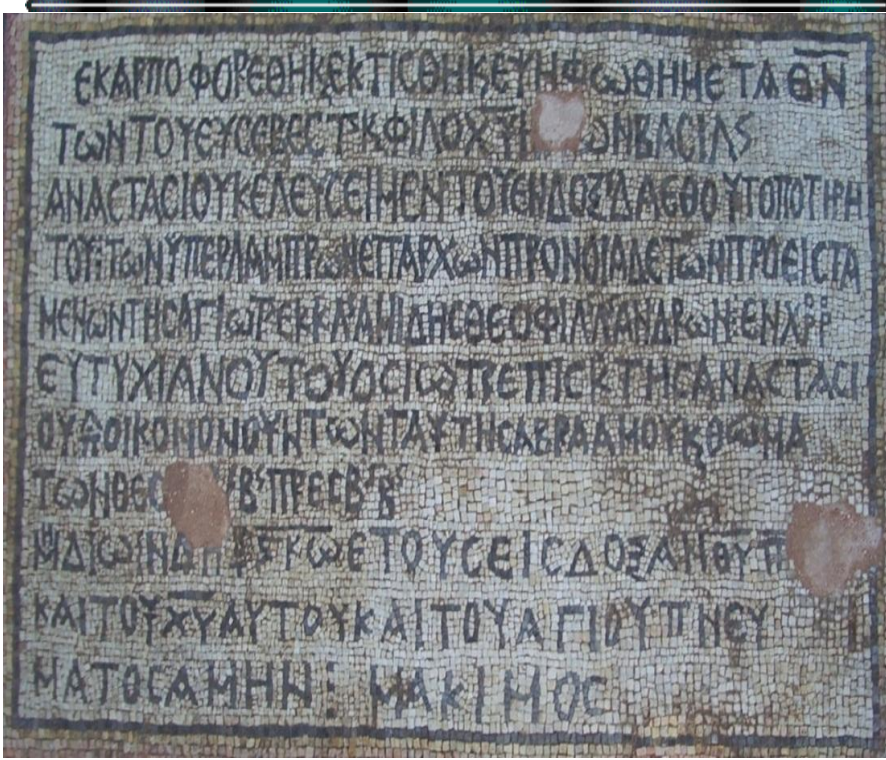 ΕΚΑΡΠΟΦΟΡΕΘΗ Κ ΕΚΤΙCΘΗ Κ ΕΨΗΦΩΘΗ ΜΕΤΑ ΘΝ
ΤΩΝ ΤΟΥ ΕΥCΕΒΕCΤ Κ ΦΙΛΟΧΥ ΩΝ ΒΑCΙΛS
ΑΝΑCΤΑCΙΟΥ ΚΕΛΕΥCΕΙ ΜΕΝ ΤΟΥ ΕΝΔΟΞ
ΤΟΥ ΤΩΝ ΥΠΕΡΛΑΜΠΡΩΝ ΕΠΑΡΧΩΝ ΠΡΟΝΟΙΑ ΔΕ ΤΩΝ ΠΡΟΕΙCΤΑ
ΜΕΝΩΝ ΤΗC ΑΓΙΩΤ ΕΚΚΛ ΘΕΟΦΙΛ ΑΝΔΡΩΝ
ΕΥΤΥΧΙΑΝΟΥ ΤΟΥ ΟCΙΩΤ ΕΠΙCΚ ΤΗC ΑΝΑCΤΑCΙ
ΟΥΠ ΟΙΚΟΝΟΜΟΥΝΤΩΝ ΤΑΥΤΗC ΑΒΡΑΑΜΟΥ Κ ΘΩΜΑ
ΤΩΝ ΘΕΟ ΠΡΕCΒ
ΙΝΔ ΚΩ ΕΤΟΥC ΕΙC ΔΟΞΑΝ ΘΥ
ΚΑΙ ΤΟΥ ΧΥ ΑΥΤΟΥ ΚΑΙ ΤΟΥ ΑΓΙΟΥ ΠΝΕΥ
ΜΑΤΟC ΑΜΗΝ : ΜΑΚΙΜΟC